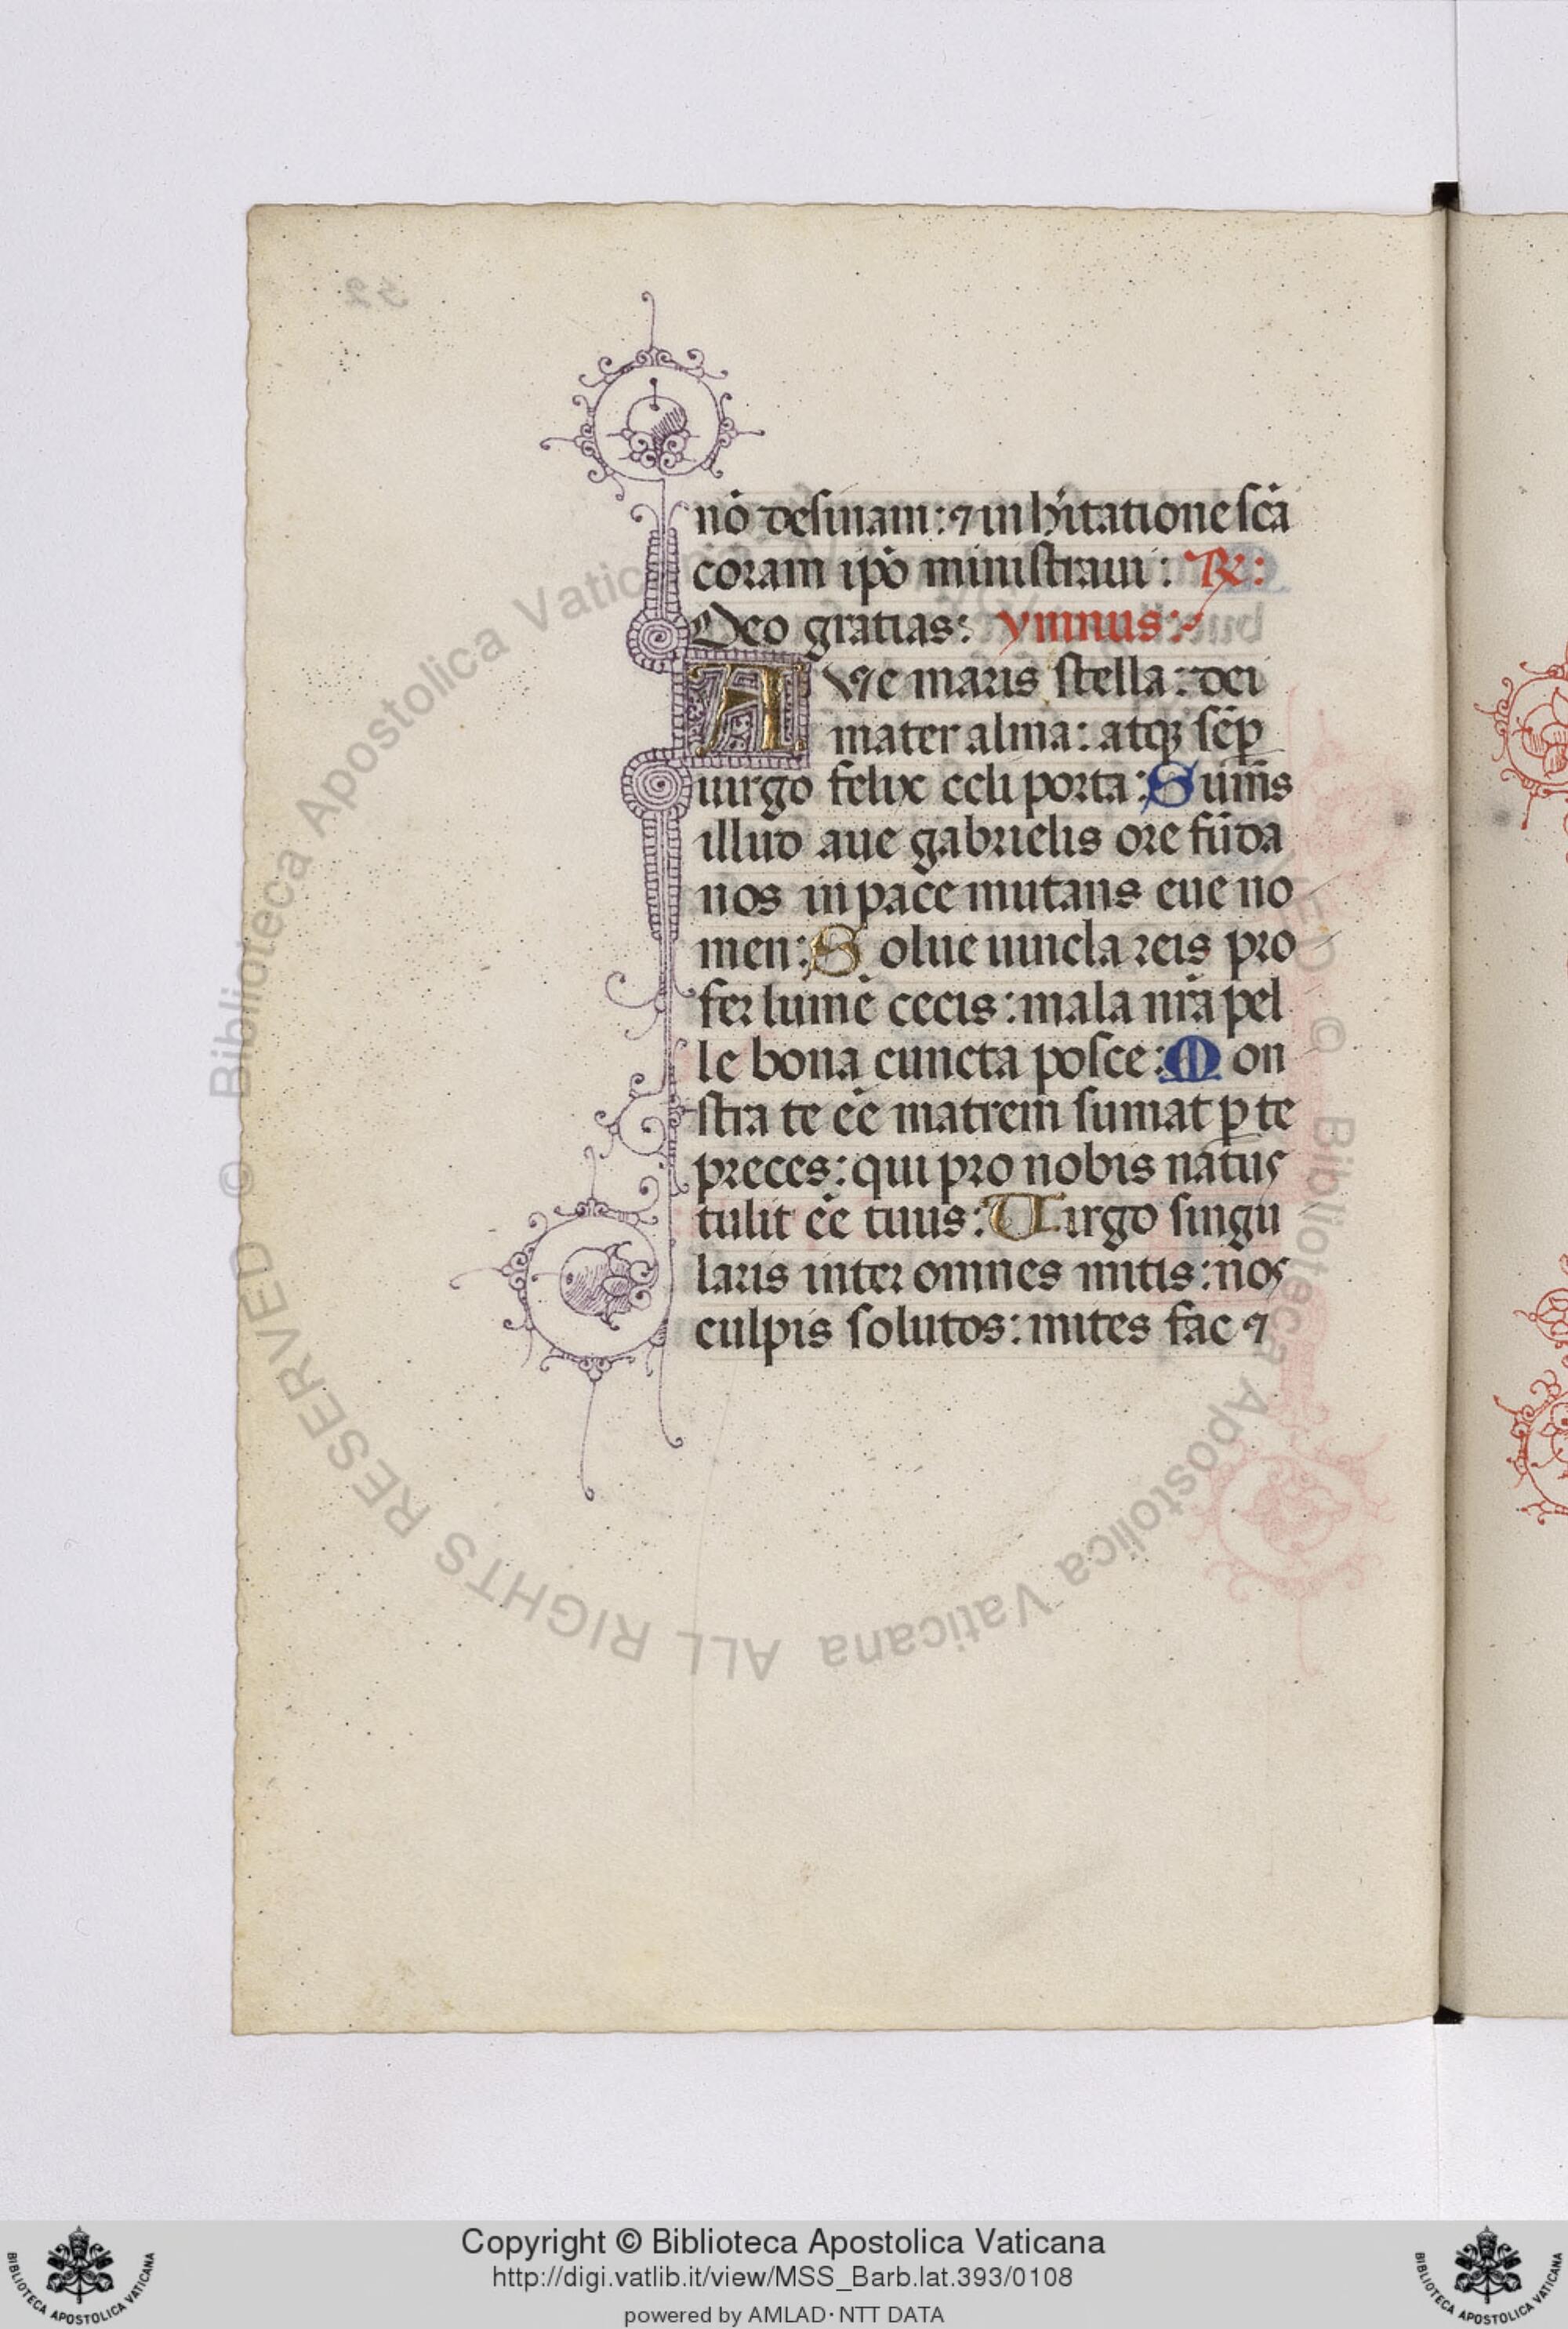 nō desinam: ⁊ in h̄itatione sc̄a
coram ip̄o ministraui: ℞:
Deo gratias: ymnus:
AVe maris stella: dei
mater alma: atqꝫ sēꝑ
uirgo felix celi porta: Sum̄s
illud aue gabrielis ore fūda
nos in pace mutans eue no
men: Solue uincla reis pro
fer lumē cecis: mala nr̄a pel
le bona cuncta posce: Mon
stra te eē matrem sumat ꝑ te
preces: qui pro nobis natus
tulit eē tuus: Uirgo singu
laris inter omnes mitis: nos
culpis solutos: mites fac ⁊
© Biblioteca Apostolica Vaticana ALL RIGHTS RESERVED
© Biblioteca Apostolica Vaticana
Copyright © Biblioteca Apostolica Vaticana
http://digi.vatlib.it/view/MSS_Barb.lat.393/0108
powered by AMLAD·NTT DATA
BIBLIOTECA APOSTOLICA VATICANA
BIBLIOTECA APOSTOLICA VATICANA